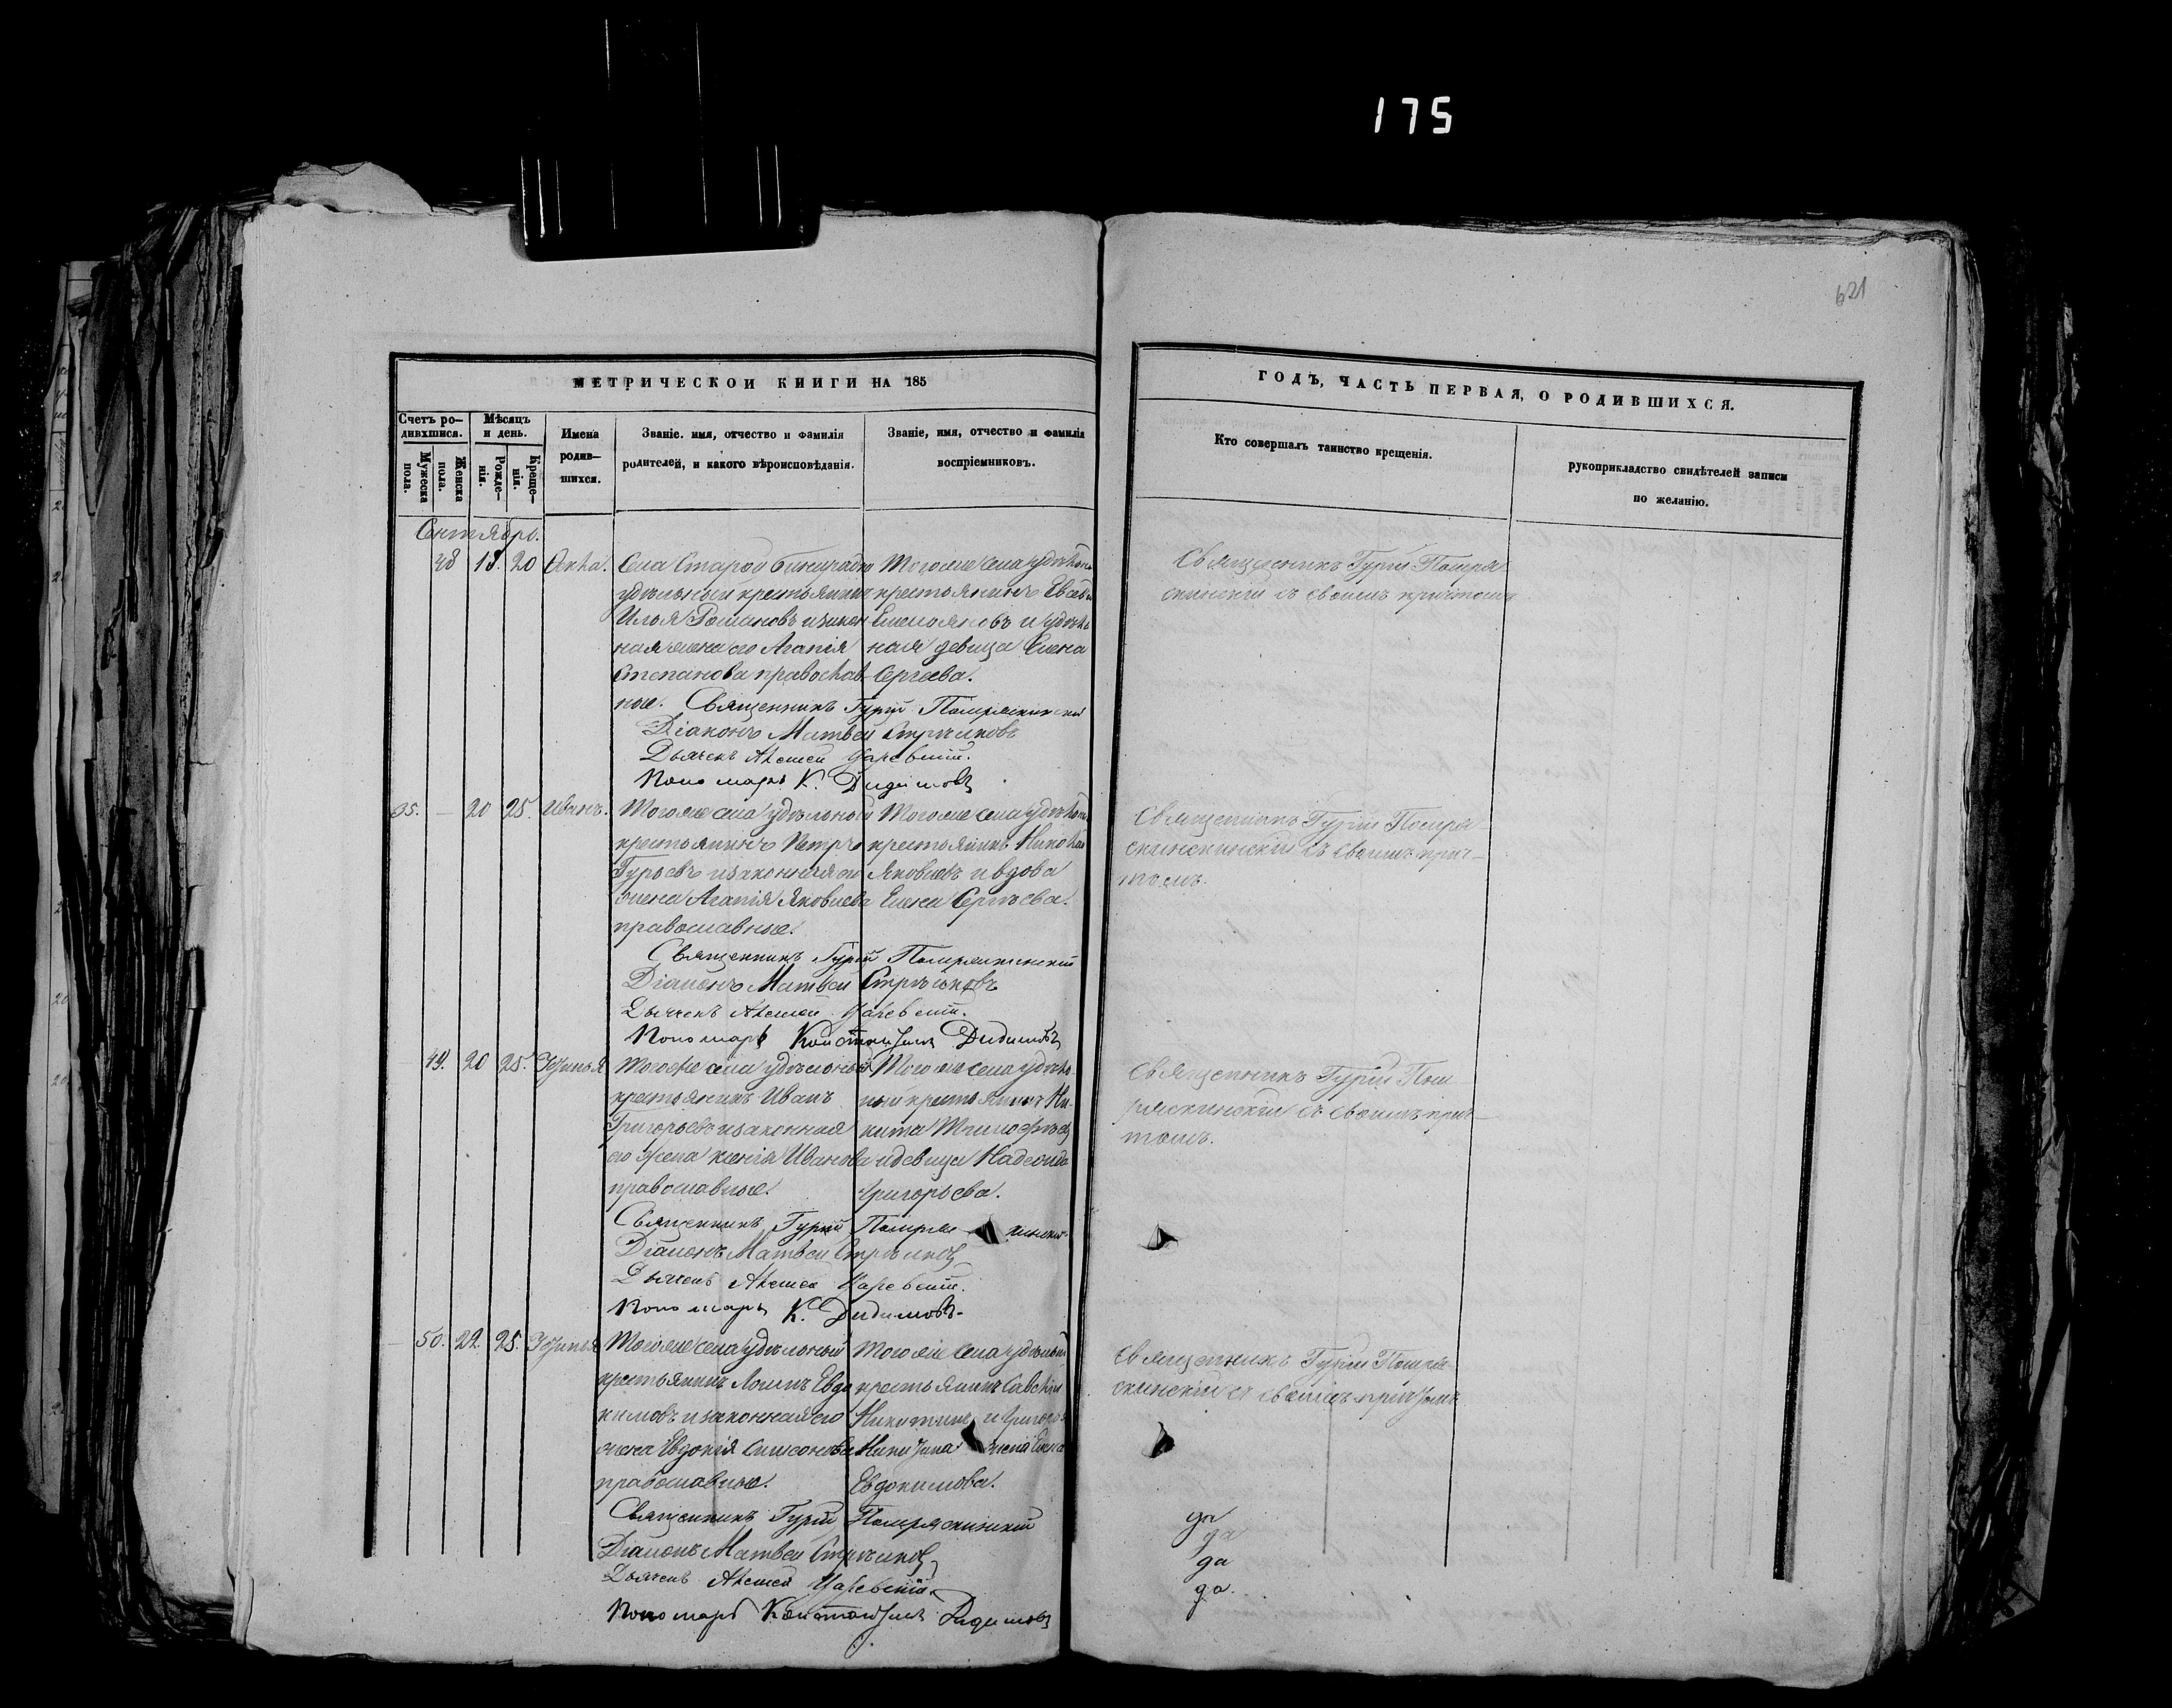 175
621
МЕТРИЧЕСКОЙ КНИГИ НА 185
ГОДЪ, ЧАСТЬ ПЕРВАЯ, О РОДИВШИХСЯ.
Счетъ ро-
дившхися.
Мужеска
пола.
Женска
пола.
Мѣсяцъ
и день.
Рожде-
нія.
Креще-
нія.
Имена
родив-
шихся.
Званіе. имя, отчество и фамилія
родителей, и какого вѣроисповѣданія.
Званіе, имя, отчество и фамилія
воспріемниковъ.
Кто совершалъ таинство крещенія.
рукоприкладство свидѣтелей записи
по желанію.
Сентябрь.
48 18. 20 Анна.
Села Старой
удѣльный крестьянинъ
Илья Романовъ и закон-
ная жена его Агапія
Степанова православ-
ные.
Тогоже села удѣльной
крестьянинъ
Емельяновъ и удѣль-
ная девица Елена
Сергеева.
Священникъ Гурій
Діаконъ Матвей Стрѣлковъ
Дьячекъ Алексей Царевский.
Пономарь К. Дидимовъ
Священникъ Гурій
съ своимъ причтомъ
35. — 20 25. Иванъ.
Тогоже села удѣльный
крестьянинъ Петръ
Гурьевъ и законная его
жена Агапія Яковлева
православные.
Тогоже села удѣльной
крестьянинъ Николай
Яковлевъ и вдова
Елена Сергѣева.
Священникъ Гурій
Діаконъ Матвей Стрѣлковъ
Дьячекъ Алексей Царевский.
Пономарь Константинъ Дидимовъ
Священникъ Гурій
съ своимъ прич-
томъ.
49. 20 25.
Тогоже села удѣльный
крестьянинъ Иванъ
Григорьевъ и законная
его жена Ксенія Иванова
православные.
Тогоже села удѣль-
ный крестьянинъ Ни-
кита Тимофѣевъ
и девица Надежда
Григорьева.
Священникъ Гурій
Діаконъ Матвей Стрѣлковъ
Дьячекъ Алексей Царевский.
Пономарь К. Дидимовъ.
Священникъ Гурій
съ своимъ прич-
томъ.
50. 22. 25.
Тогоже села удѣльный
крестьянинъ Логинъ Евдо
кимовъ и законная его
жена Евдокія Симонова
православные.
Тогоже села удѣльный
крестьянинъ Савелій
Никитинъ и Григорья
Никитина жена Елена
Евдокимова.
Священникъ Гурій
Діаконъ Матвей Стрѣлковъ
Дьячекъ Алексей Царевский.
Пономарь Константинъ Дидимовъ
Священникъ Гурій
съ своимъ причтомъ
да
да
да
да.